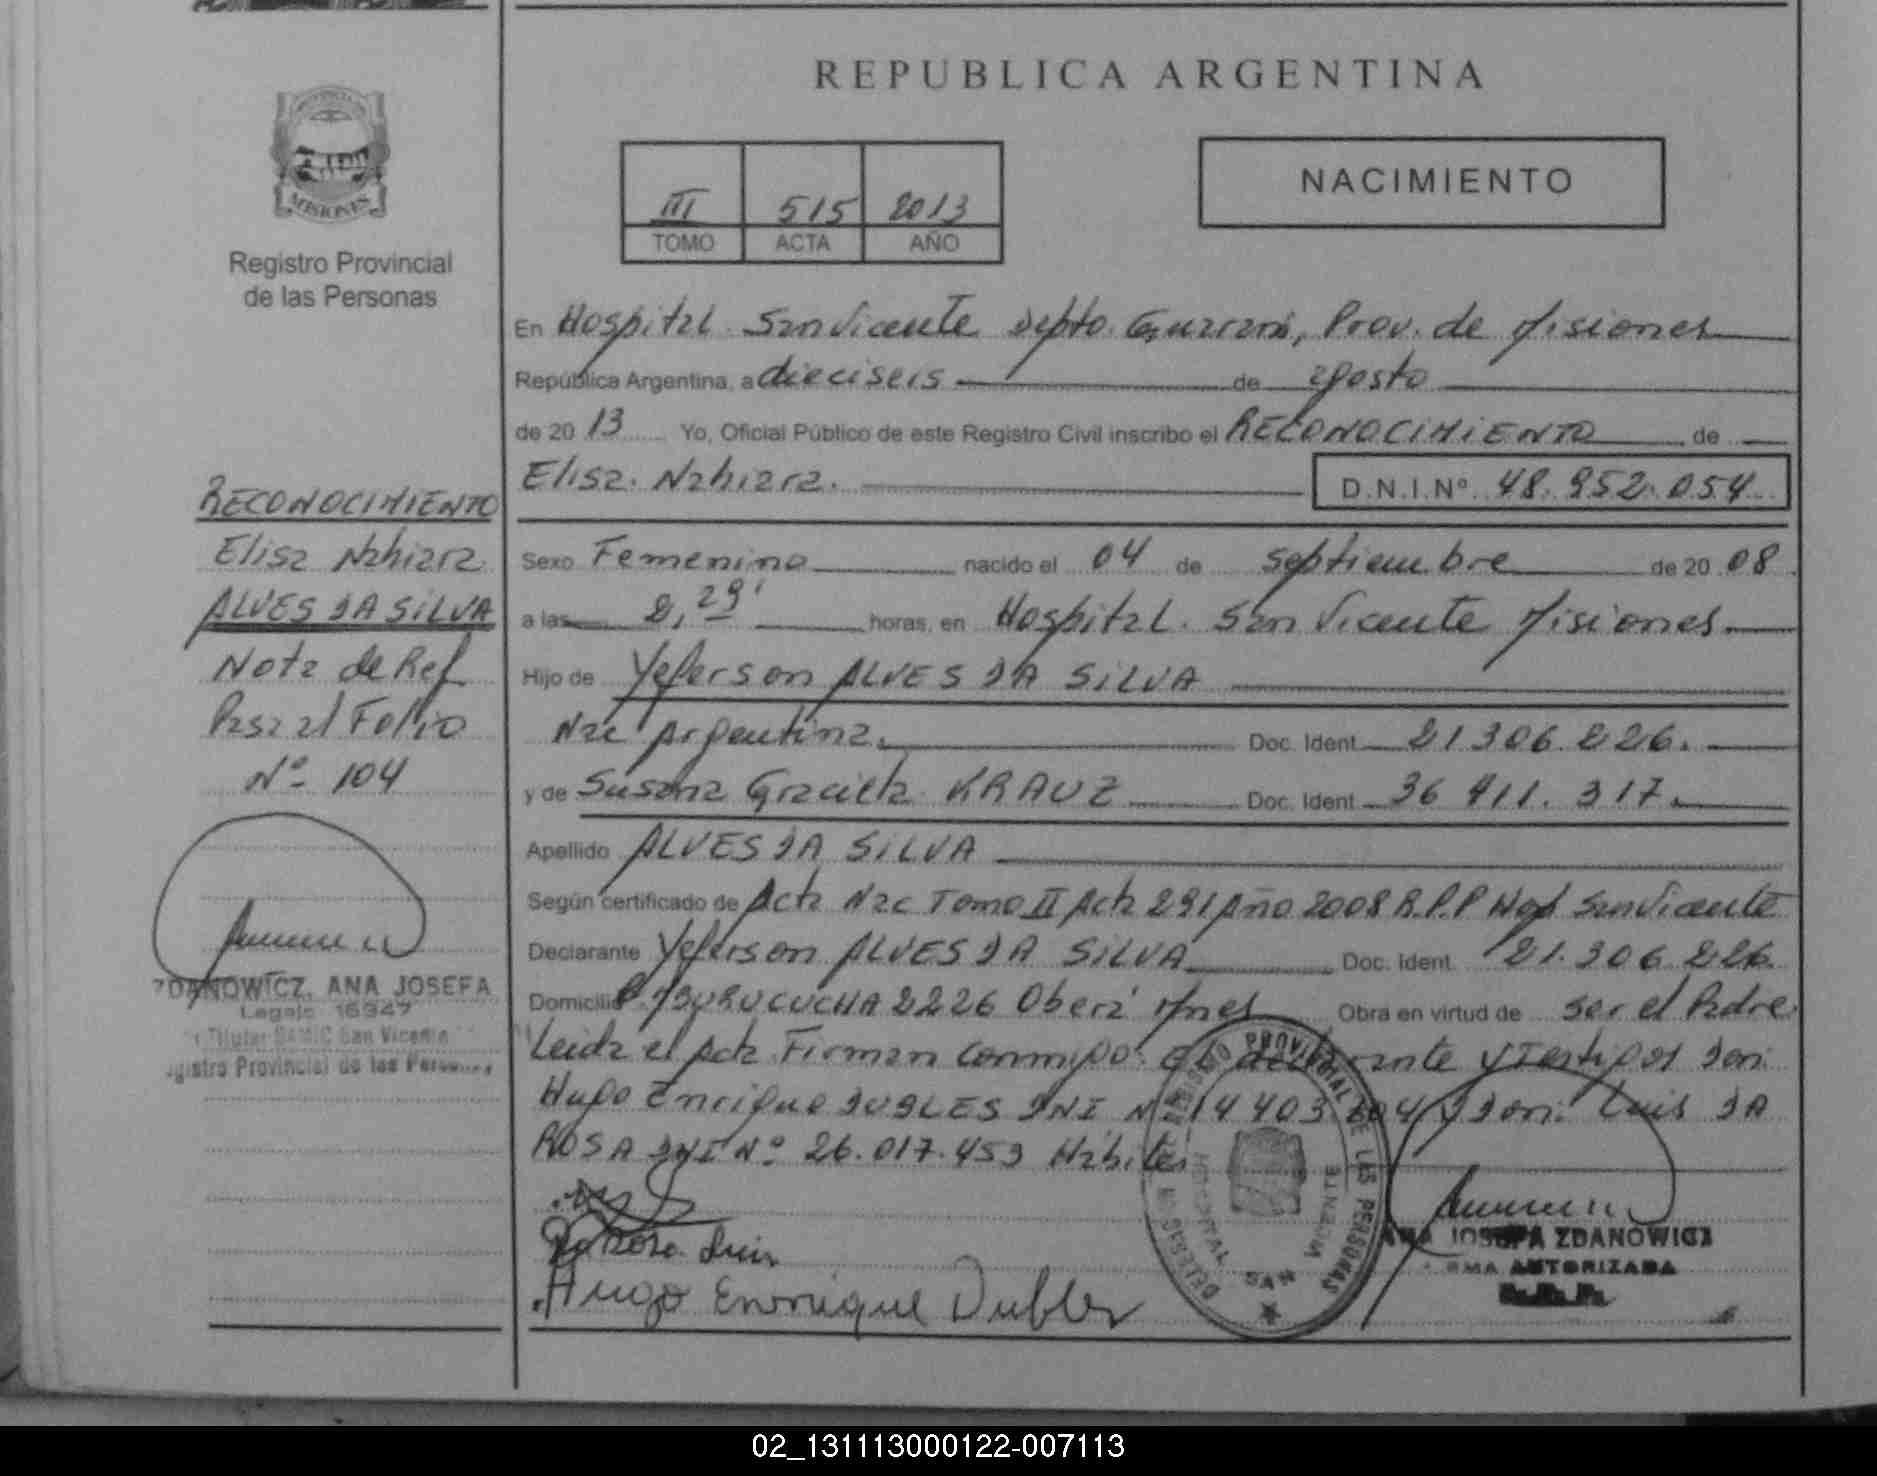 REPUBLICA ARGENTINA
PROVINCIA DE
MISIONES
Registro Provincial
de las Personas
III 515 2013
TOMO ACTA AÑO
NACIMIENTO
En Hospital. San Vicente Depto. Guarani, Prov. de Misiones
República Argentina, a dieciseis de agosto
de 20 13 Yo, Oficial Público de este Registro Civil inscribo el RECONOCIMIENTO de
Elisa. Nahiara. D.N.I.Nº 48.952.054
Sexo Femenino nacido el 04 de septiembre de 20 08
a las 2,29' horas, en Hospital. San Vicente Misiones
Hijo de Yeferson ALVES DA SILVA
Nac Argentina. Doc. Ident. 21306.226.
y de Susana Graciela KRAUZ Doc. Ident. 36 411. 317.
Apellido ALVES DA SILVA
Según certificado de Acta Nac Tomo II Acta 291 Año 2008 R.P.P Hosp San Vicente
Declarante Yeferson ALVES DA SILVA Doc. Ident. 21.306 226.
Domicilio 2226 Oberá Mnes Obra en virtud de ser el Padre
Leida el Acta Firman Conmigo. El declarante y Testigos Don:
Hugo Enrique DUBLES DNI Nº 14 403 y Don: Luis DA
ROSA DNI Nº 26.017.453 Hábiles
Da Rosa Luis
Hugo Enrrique Dubles
REGISTRO PROVINCIAL DE LAS PERSONAS
HOSPITAL SAN VICENTE
ANA JOSEFA ZDANOWICZ
FIRMA AUTORIZADA
RECONOCIMIENTO
Elisa Nahiara
ALVES DA SILVA
Nota de Ref
Pasa al Folio
Nº 104
ZDANOWICZ, ANA JOSEFA
Legajo 16947
Titular SAMIC San Vicente
Registro Provincial de las Personas
02_131113000122-007113